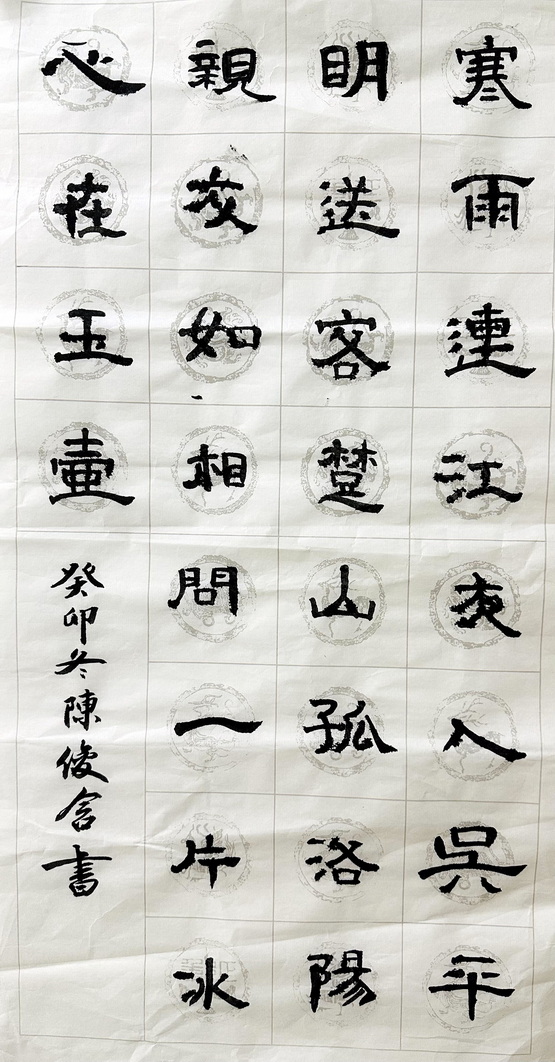 寒雨連江夜入吳平
眀送客楚山孤洛陽
親友如相問一片冰
心在玉壺
癸卯冬陳俊含書